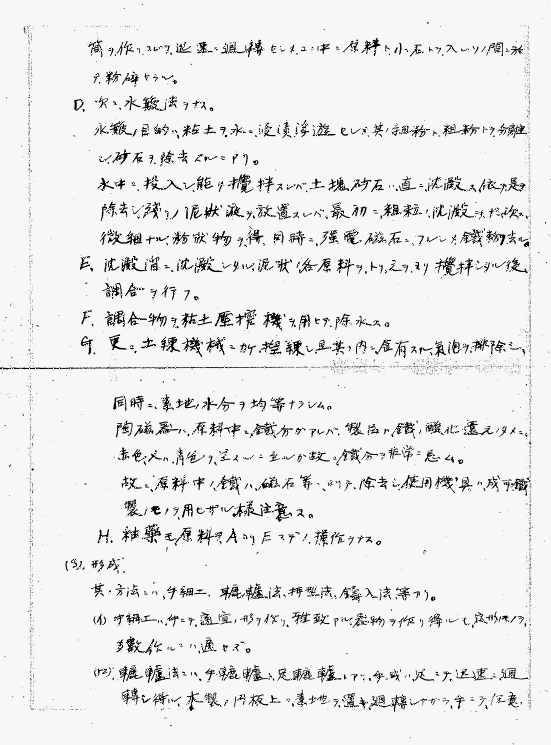 筒ヲ作リ、スレヲ迅速ニ廻轉セシメ、コノ中ニ原料ト小石トヲ入レソノ間ニ於
テ粉碎セラル。
D. 次ニ水簸法ヲナス。
水簸ノ目的ハ粘土ヲ水ニ浸漬浮遊セシメ其ノ細粉ト粗粉トヲ分離
シ砂石ヲ除去スルニアリ。
水中ニ投入シ能ク攪拌スレバ土塊砂石ハ直ニ沈澱ス依テ是ヲ
除去シ残リノ泥狀液ヲ放置スレバ最初ニ粗粒ハ沈澱シ次ニ
微細ナル粉狀物ヲ得、同時ニ強電磁石ニフレシメ鐵粉去ル。
E. 沈澱シタル泥狀ノ各原料ヲトリ攪拌シタル後
調合ヲ行フ。
F. 調合物ヲ粘土壓搾機ヲ用ヒテ除水ス。
G. 更ニ土練機械ニカケ捏練シ且其ノ内ニ含有スル氣泡ヲ排除シ、
同時ニ素地ノ水分ヲ均等ナラシム。
陶磁器ハ原料中ニ鐵分ガアレバ製法ハ鐵ノ酸化還元ノタメニ
赤色又ハ青色ヲ呈スルニ至ルガ故ニ鐵分ヲ非常ニ忌ム。
故ニ原料中ノ鐵ハ磁石等ニヨリテ除去シ使用機具ハ成可鐵
製ノモノヲ用ヒザル樣注意ス。
H. 釉藥モ原料ヲAヨリEマデノ操作ヲナス。
(3). 形成
其ノ方法ニハ手細工、轆轤法、押型法、鑄入法等アリ。
(イ) 手細工ハ手ニテ適宜ノ形ヲ作リ雅致アル器物ヲ作リ得ルモ定形モノヲ
多數作ルニハ適セズ。
(ロ). 轆轤法ニハ手轆轤ト足轆轤トアリ、手或ハ足ニテ迅速ニ廻
轉シ得ル木製ノ円板上ニ素地ヲ置キ廻轉シナガラ手ニテ任意